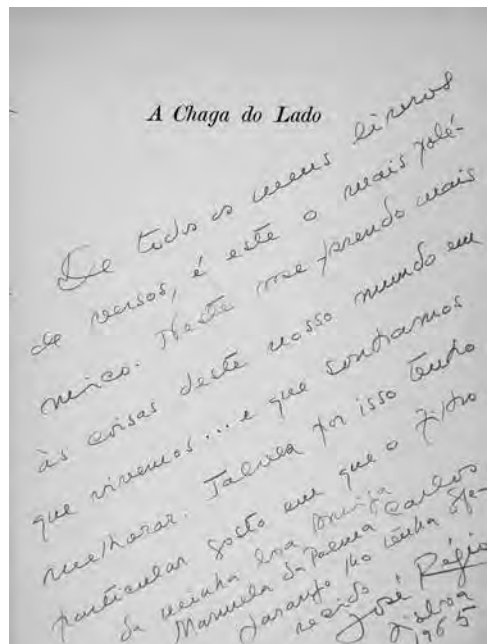 A Chaga do Lado
De todos os meus livros
de versos, é este o mais polé-
mico. Neste me prendo mais
às coisas deste nosso mundo em
que vivemos... e que sonhamos
melhorar. Talvez por isso tenho
particular gosto em que o filho
da minha boa amiga
Manuela da Palma Carlos
mo tenha ofe-
recido
José Régio
65